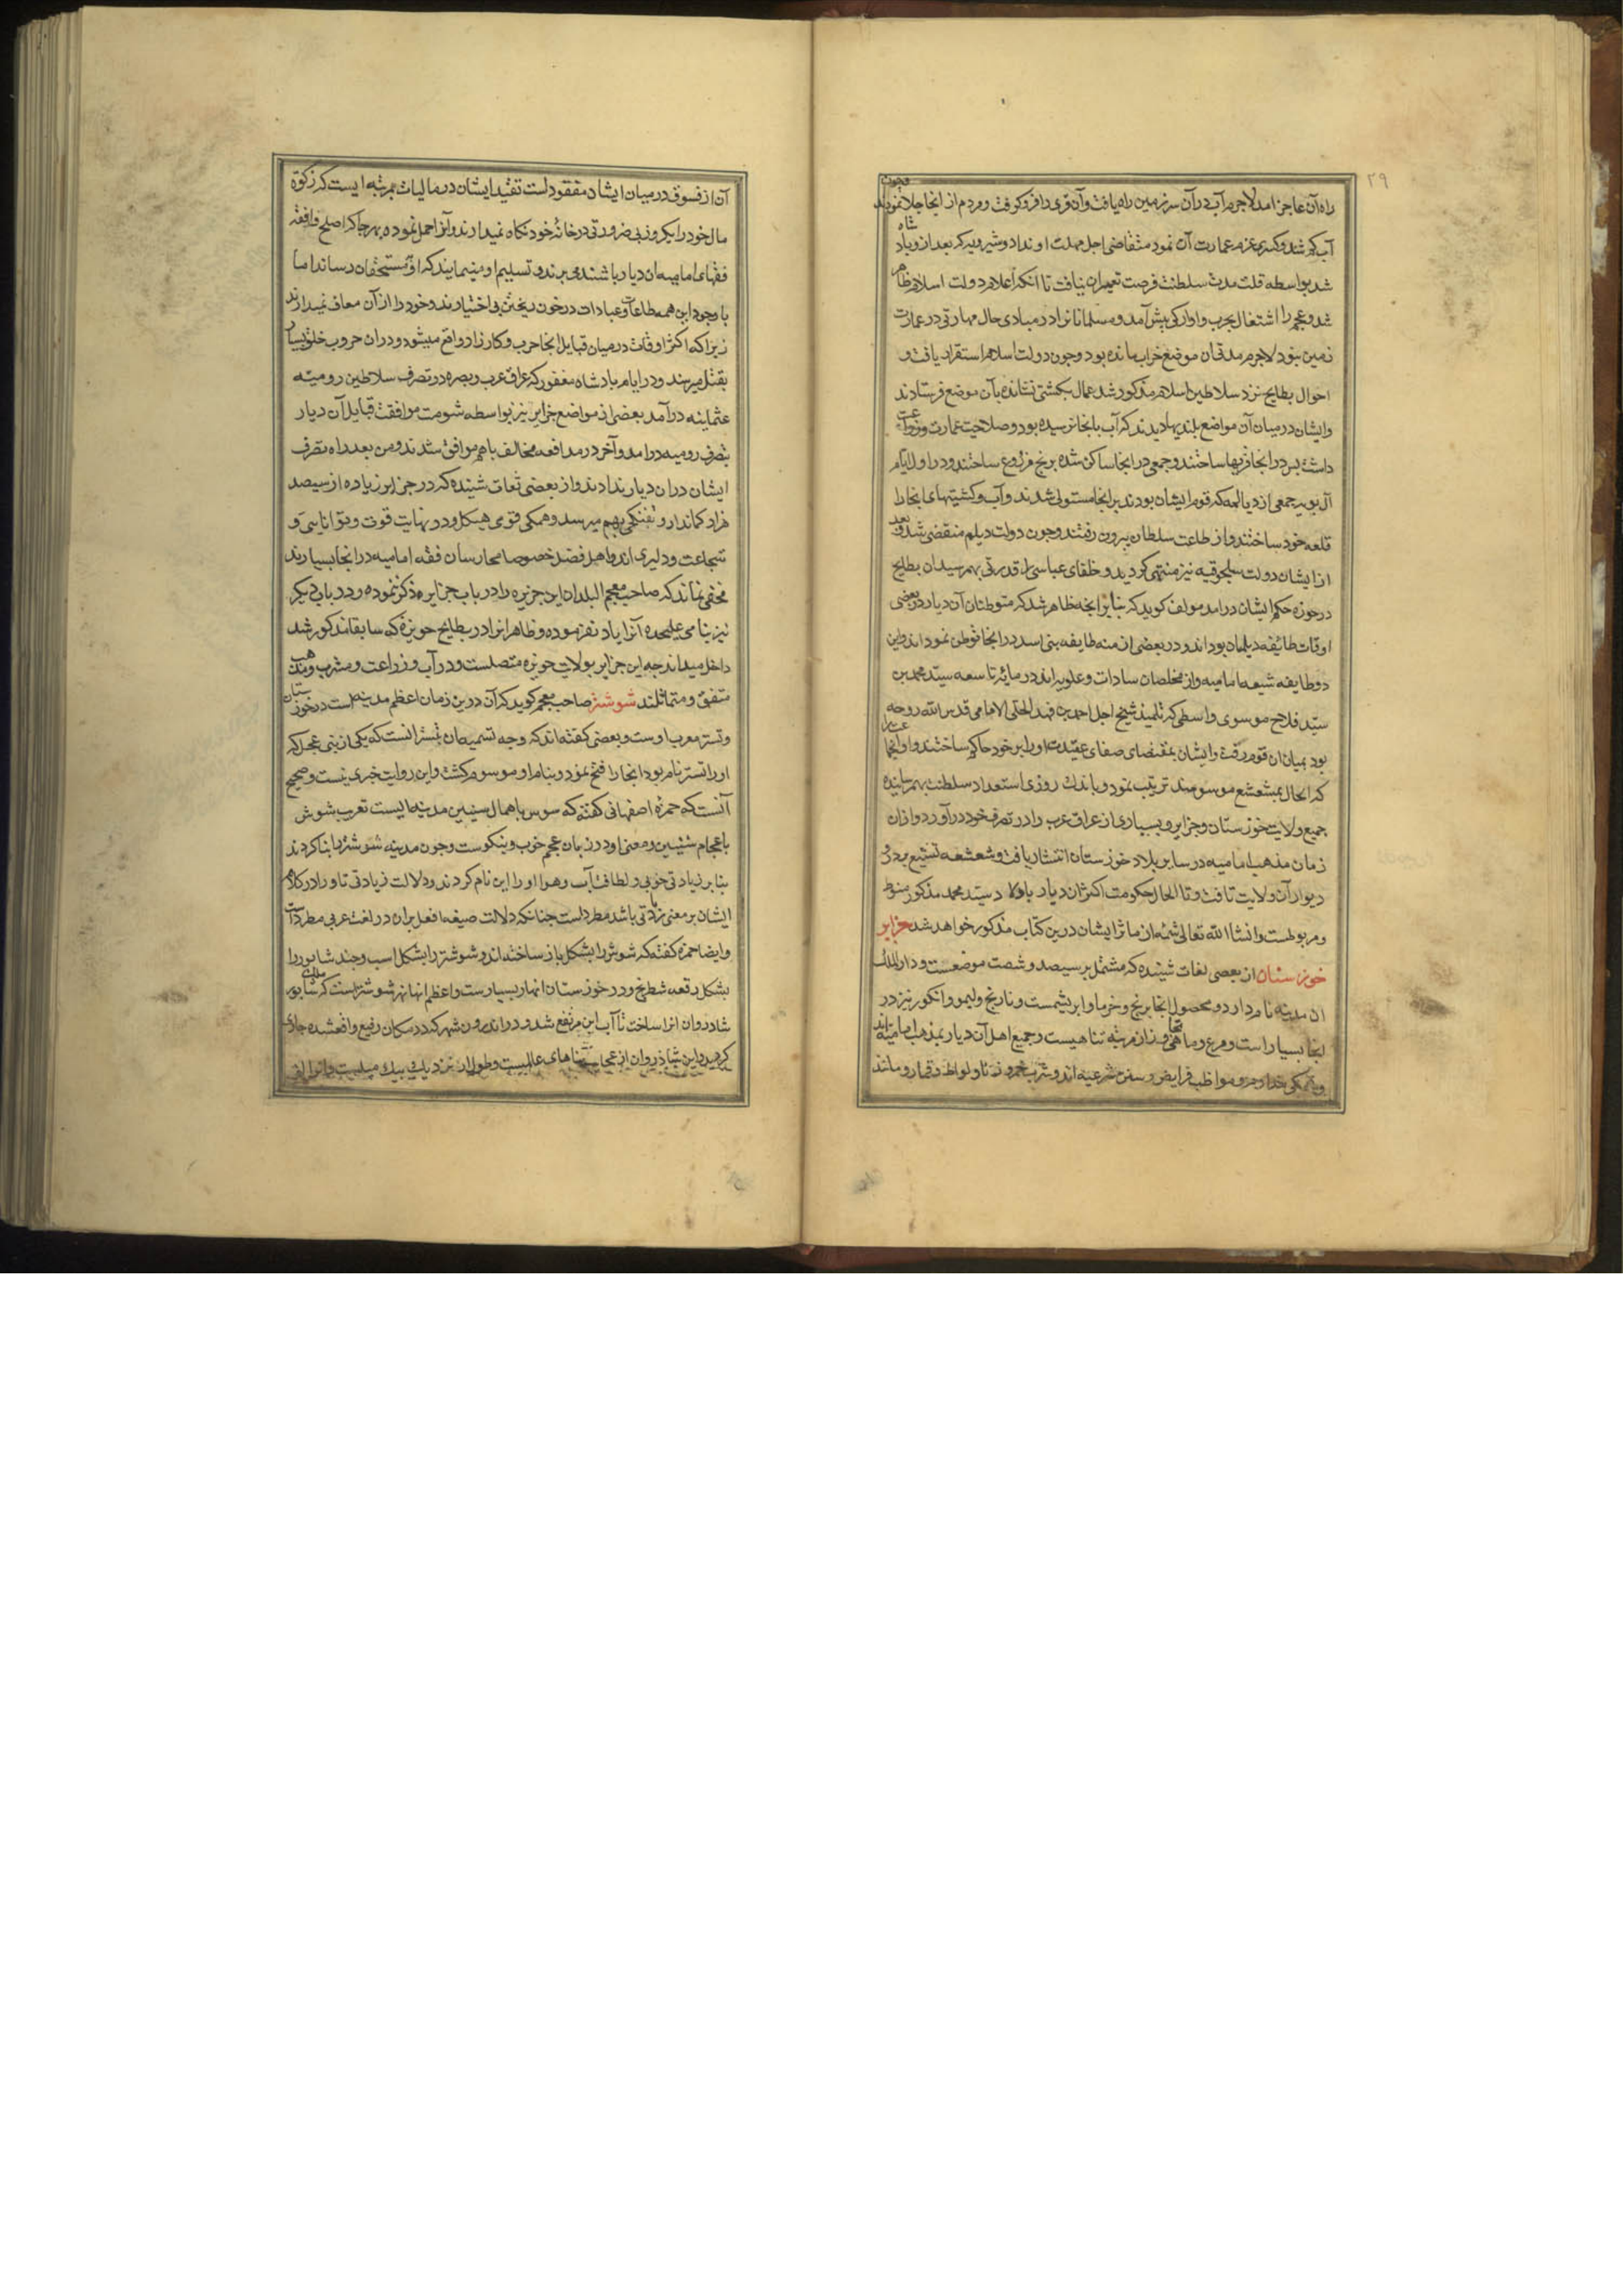 ٢٩
راه آن عاجز امد لاجرم آب در آن سرزمین راه یافت و آن قری را فرو کرفت و مردم از انجا جلا نمودند فچون
آب کم شد و کسری عزم عمارت آن نمود متقاضی اجل مهلت او نداد و شیرویه که بعد ازو پادشاه
شد بواسطه قلت مدت سلطنت فرصت تعمیر ان نیافت تا انکه اعلام دولت اسلام ظاهر
شد و عجم را اشتغال بحرب و اوارکی پیش آمد و مسلمانانرا در مبادی حال مهارتی در عمارت
زمین نبود لاجرم مدتی آن موضع خراب مانده بود و چون دولت اسلام استقرار یافت و
احوال بطایح نزد سلاطین اسلام مذکور شد عمال بکشتی نشانده بآن موضع فرستادند
و ایشان در میان آن مواضع بلندیها دیدند که آب بانجا نرسیده بود و صلاحیت عمارت و زراعت
داشت پس در انجا قریها ساختند و جمعی در انجا ساکن شده برنج مزروع ساختند و در اول ایام
آل بویه جمعی از دیالمه که قوم ایشان بودند بر انجا مستولی شدند و آب و کشتیهای انجا را
قلعه خود ساختند و از طاعت سلطان بیرون رفتند و چون دولت دیلم منقضی شد و بعد
از ایشان دولت سلجوقیه نیز منتهی کردید و خلفای عباسی را قدرتی بهم رسید ان بطایح
در حوزه حکم ایشان درامد مولف کوید که بنابر انچه ظاهر شد که متوطنان آن دیار در بعضی
اوقات طائفه دیلمان بوده‌اند و در بعضی ازمنه طایفه بنی اسد در انجا توطن نموده‌اند و این
دو طایفه شیعه امامیه و از مخلصان سادات و علویه اند در مائه تاسعه سید محمد بن
سید فلاح موسوی واسطی که تلمیذ شیخ اجل احمد بن فهد الحلی الامامی قدس الله روحه
بود بمیان ان قوم رفت و ایشان بمقتضای صفای عقیدت او را بر خود حاکم ساختند و او انجماعت را
که الحال بمشعشع موسومند تربیت نمود و باندک روزی استعداد سلطنت بهم رسانیده
جمیع ولایت خوزستان و جزایر و بسیاری از عراق عرب را در تصرف خود درآورد و از ان
زمان مذهب امامیه در سایر بلاد خوزستان انتشار یافت و شعشعه تشیع بر در و
دیوار آن ولایت تافت و تا الحال حکومت اکثر ان دیار باولاد سید محمد مذکور منوط
و مربوطست و انشا الله تعالی شمه از ماثر ایشان درین کتاب مذکور خواهد شد جزایر
خوزستان از بعضی ثقات شنیده که مشتمل بر سیصد و شصت موضعست و دار الملک
ان مدینه نام دارد و محصول انجا برنج و خرما و ابریشمست و نارنج و لیمو و انکور نیز در
انجا بسیار است و مرغ و ماهی انجا فزون از مرتبه تناهیست و جمیع اهل آن دیار بمذهب امامیه اند
و همکی خدا ترس و مواظب فرایض و سنن شرعیه اند و شرب خمر و زنا و لواطه و قمار و مانند
آن از فسوق در میان ایشان مفقود است تقید ایشان در مالیات بمرتبه ایست که زکوة
مال خود را یکروز بی ضرورتی در خانهٔ خود نکاه نمیدارند و آنرا حمل نموده بهر جا که اصلح و افقه
فقهای امامیه ان دیار باشند می برند و تسلیم او مینمایند که او بمستحقان رساند اما
با وجود این همه طاعات و عبادات در خون ریختن بی اختیارند و خود را از آن معاف نمیدارند
زیرا که اکثر اوقات در میان قبایل انجا حرب و کارزار واقع میشود و در ان حروب خلق بسیار
بقتل میرسند و در ایام پادشاه مغفور که عراق عرب و بصره در تصرف سلاطین رومیه
عثمانیه درآمد بعضی از مواضع جزایر نیز بواسطه شومت موافقت قبایل آن دیار
بتصرف رومیه درامد و آخر در مدافعه مخالف باهم موافق شدند و من بعد راه تصرف
ایشان دران دیار ندادند و از بعضی ثقات شنیده که در جزایر زیاده از سیصد
هزار کماندار و تفنکچی بهم میرسد و همکی قوی هیکل و در نهایت قوت و توانایی و
شجاعت و دلیری اند و اهل فضل خصوصا ممارسان فقه امامیه در انجا بسیارند
مخفی نماند که صاحب معجم البلدان این جزیره را در باب جزایر ذکر نموده و در باب دیکر
نیز بنامی علیحده آنرا یاد نفرموده و ظاهرا انرا در بطایح حویزه که سابقا مذکور شد
داخل میداند چه این جزایر بولایت حویزه متصلست و در آب و زراعت و مشرب و مذهب
متفق و متماثلند شوشتر صاحب معجم کوید که آن درین زمان اعظم مدینه است در خوزستان
و تستر معرب اوست و بعضی کفته اند که وجه تسمیه آن بتستر انست که یکی از بنی عجل که
او را تستر نام بود انجا را فتح نمود و بنام او موسوم کشت و این روایت خبری نیست و صحیح
آنست که حمزه اصفهانی کفته که سوس باهمال سینین مدینه ایست تعریب شوش
باعجام شینین و معنی او در زبان عجم خوب و نیکوست و چون مدینه شوشتر را بنا کردند
بنابر زیادتی خوبی و لطافت آب و هوا او را این نام کردند و دلالت زیادتی تا و را در کلام
ایشان بر معنی زیادتی باشد مطرد است چنانکه دلالت صیغه افعل بران در لغت عربی مطرد است
و ایضا حمزه کفته که شوش را بشکل باز ساخته اند و شوشتر را بشکل اسب و جند شابور را
بشکل رقعه شطرنج و در خوزستان انهار بسیارست و اعظم انها نهر شوشتر است که شابور
شادروان انرا ساخت تا آب این مرتفع شد و در اندرون شهر که در مکان رفیع واقعشده جاری
کردید و این شاذروان از عجایب بناهای عالمیست و طول ان نزدیک بیک میلست